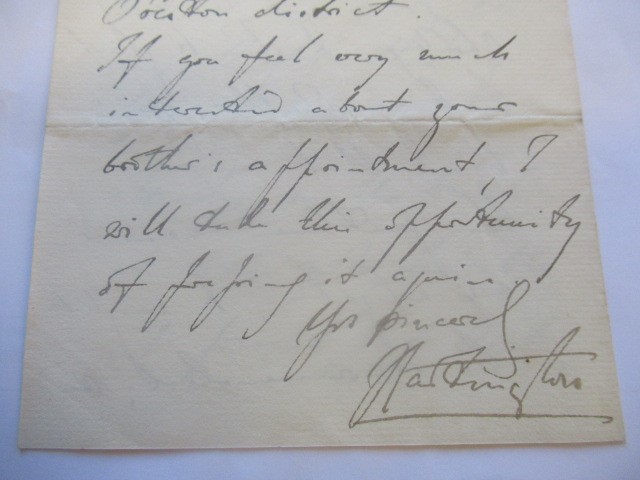 district.
If you feel very much
interested about your
brother's appointment, I
will take this opportunity
of it again.
Yrs sincerely
Hartington